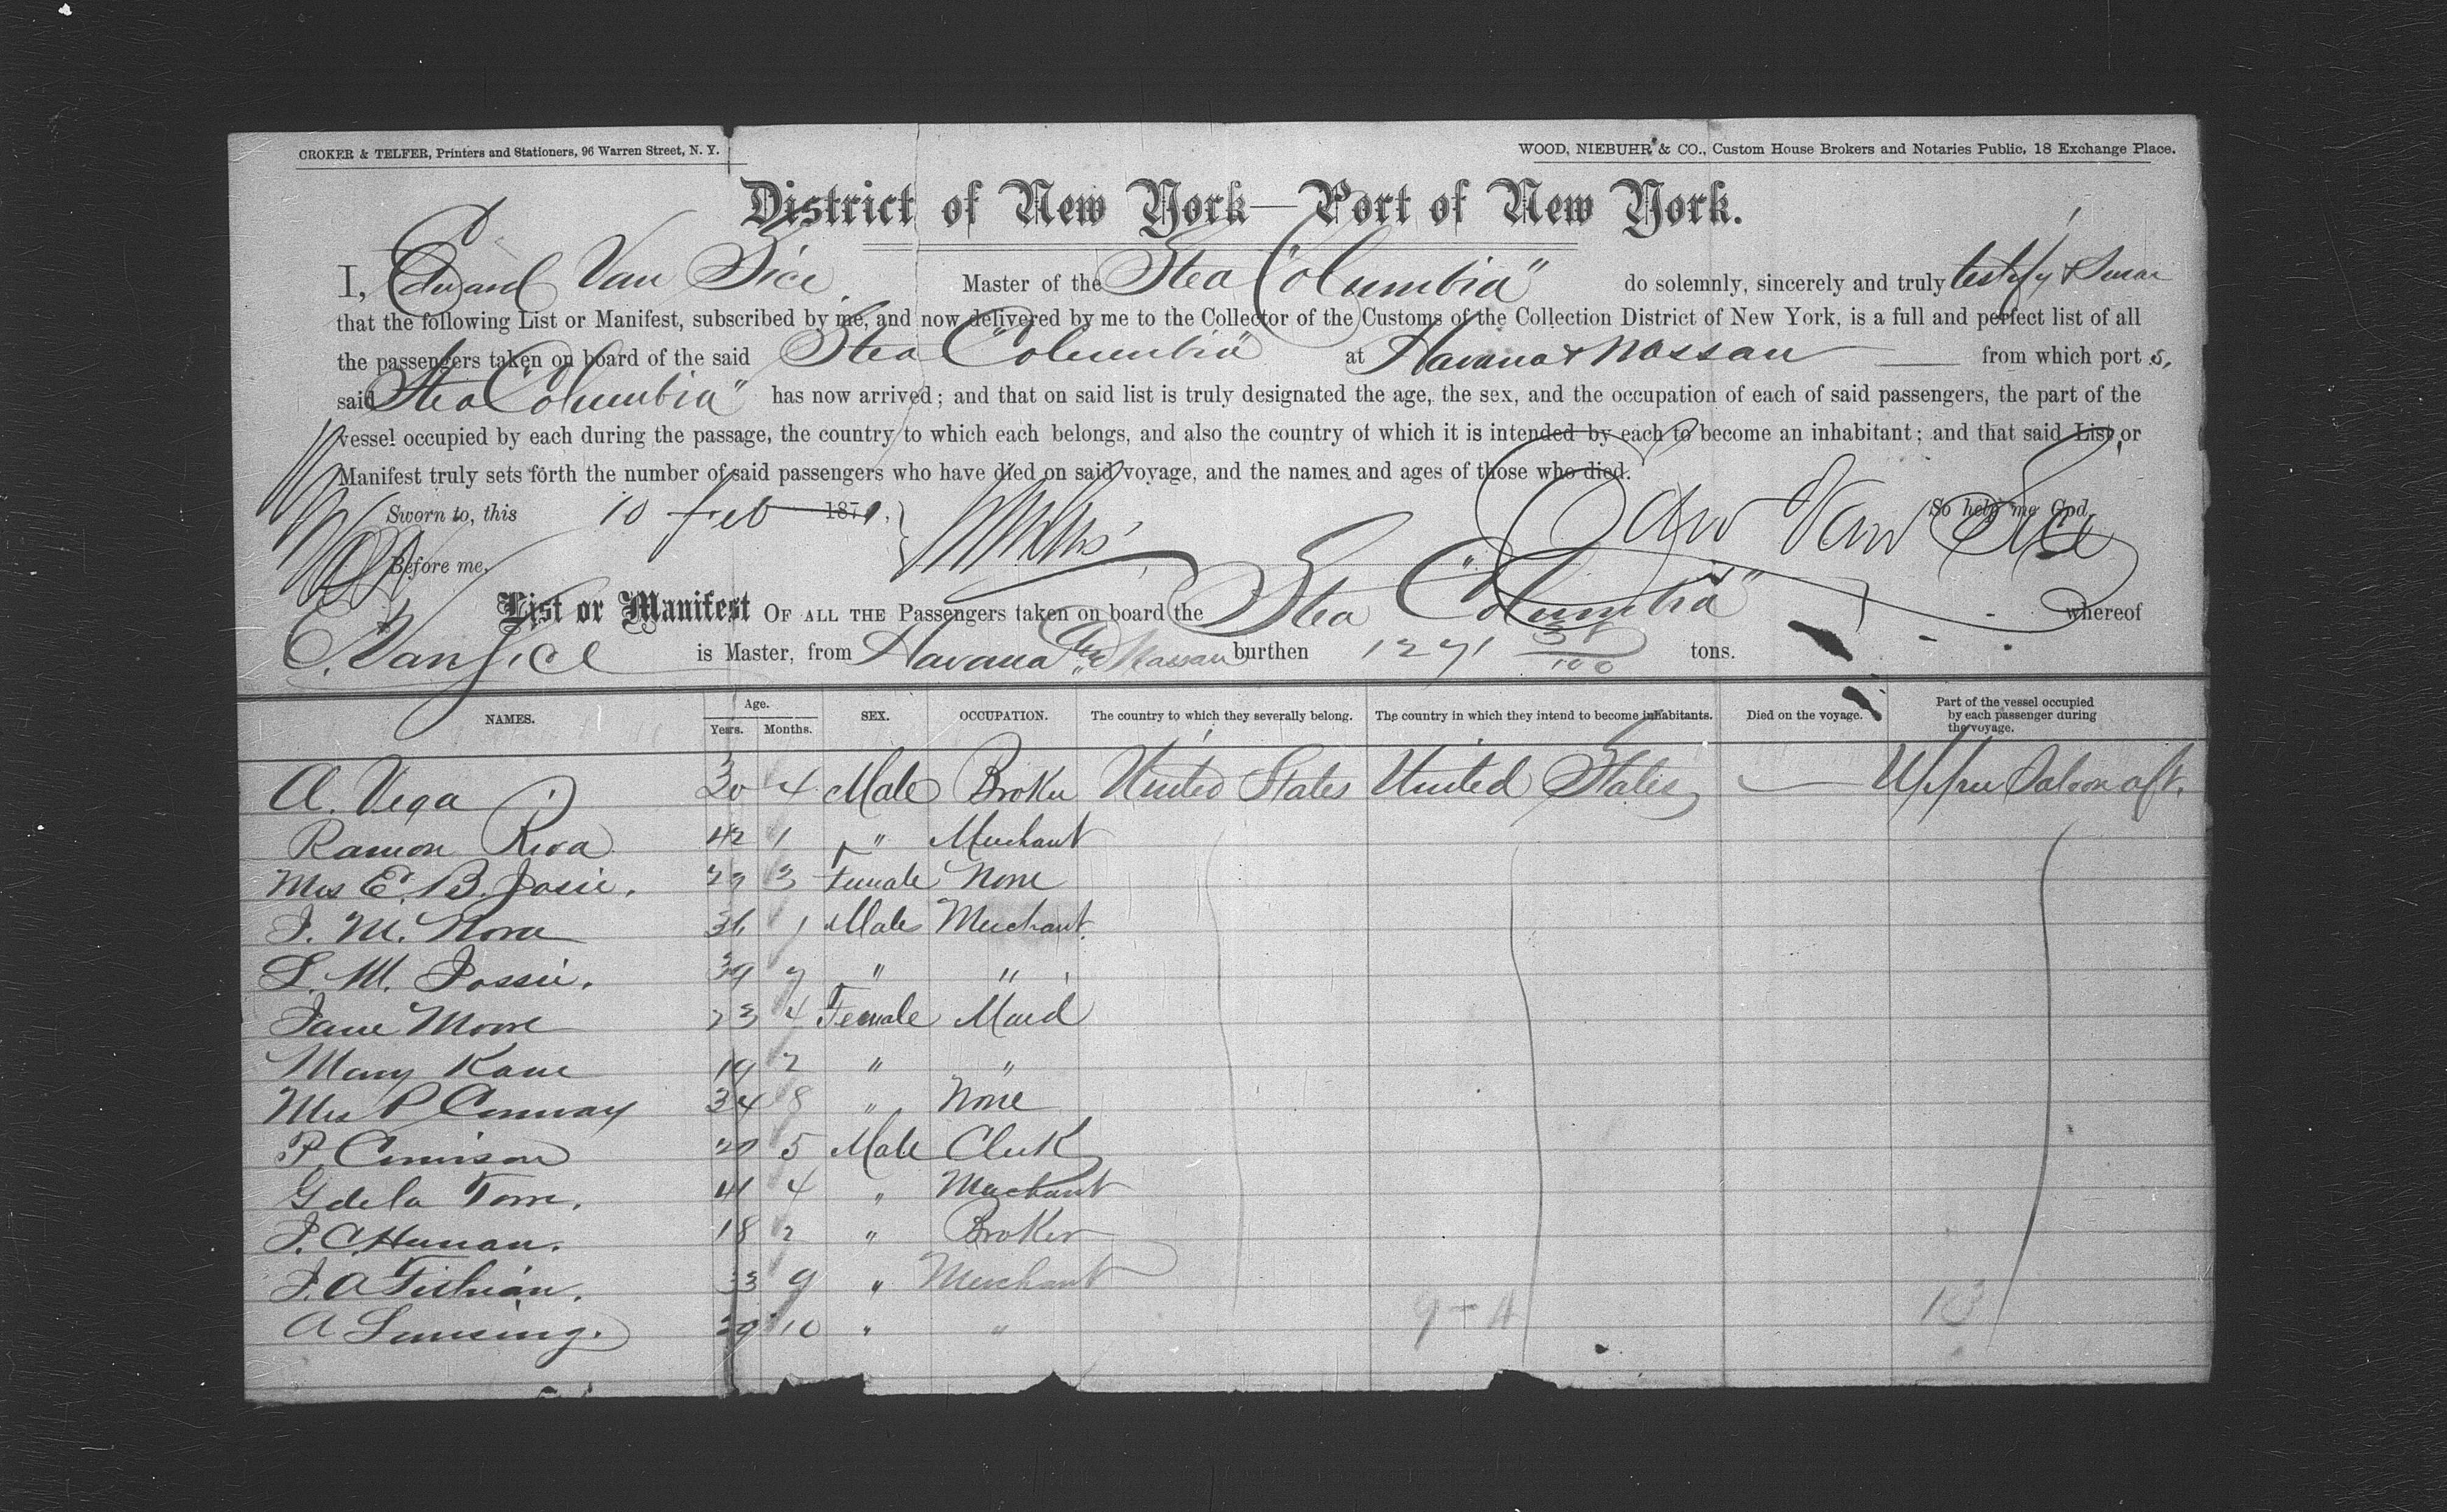 CROKER & TELFER, Printers and Stationers, 96 Warren Street, N. Y.
WOOD, NIEBUHR & CO., Custom House Brokers and Notaries Public, 18 Exchange Place.
District of New York—Port of New York.
I, Edward Van Sice Master of the Stea "Columbia" do solemnly, sincerely and truly testify & swear
that the following List or Manifest, subscribed by me, and now delivered by me to the Collector of the Customs of the Collection District of New York, is a full and perfect list of all
the passengers taken on board of the said Stea "Columbia" at Havana & Nassau from which port s,
said Stea "Columbia" has now arrived; and that on said list is truly designated the age, the sex, and the occupation of each of said passengers, the part of the
vessel occupied by each during the passage, the country to which each belongs, and also the country of which it is intended by each to become an inhabitant; and that said List or
Manifest truly sets forth the number of said passengers who have died on said voyage, and the names and ages of those who died.
Sworn to, this 10 Feb 187 So help me God,
Edw Van Sice
Before me,
List or Manifest OF ALL THE Passengers taken on board the Stea "Columbia" whereof
E. Van Sice is Master, from Havana Nassau burthen 1271 /100 tons.
NAMES. Age. Years. Months. SEX. OCCUPATION. The country to which they severally belong. The country in which they intend to become inhabitants. Died on the voyage. Part of the vessel occupied by each passenger during the voyage.
A. Vega 30 4 Male Broker United States United States — Upper Saloon aft.
Ramon Riva 42 1 " Merchant
Mrs E. B. 3 Female None
J. M. Nora 36 1 Male Merchant
L. M. 39 7 " "
Jane Moore 23 4 Female Maid
Mary Kane 19 2 " "
Mrs P Conway 34 8 " None
P. 5 Male Clerk
G de la Torre. 41 4 " Merchant
J. C. 18 2 " Broker
J. A 33 9 " Merchant
A Lansing. 29 10 " "
9 + 4 13